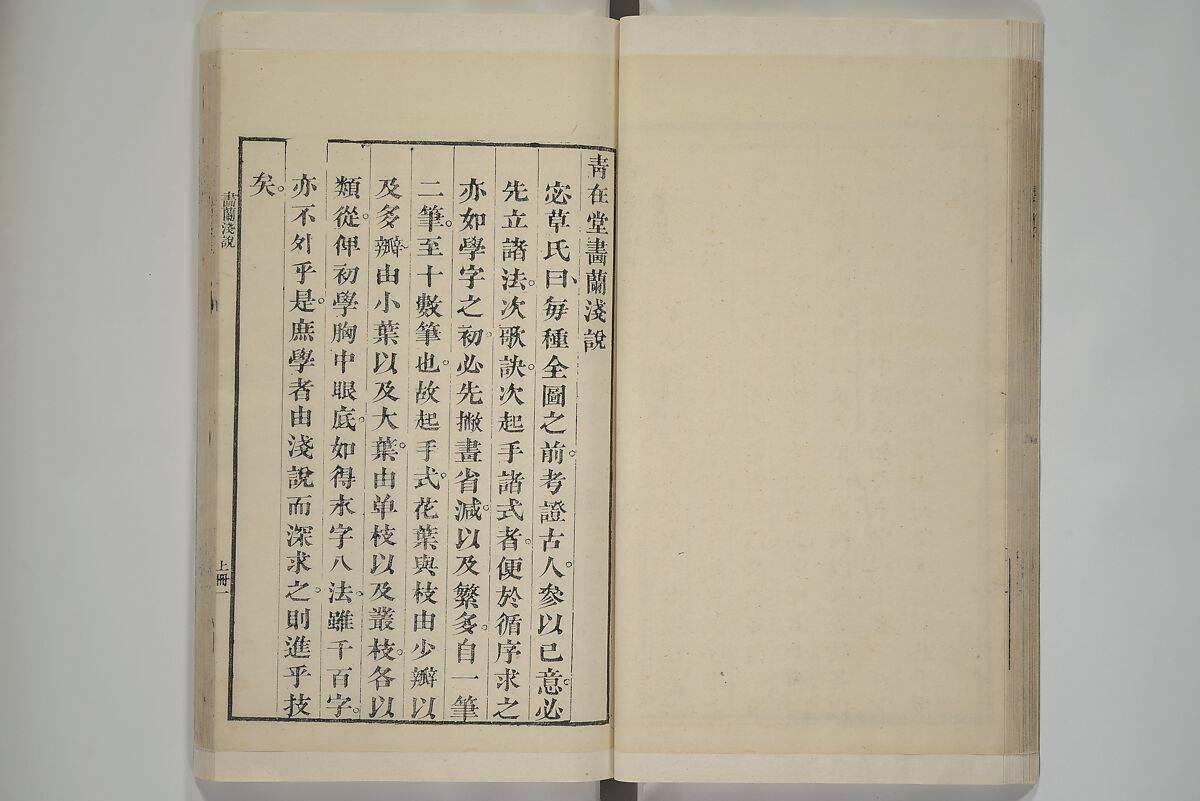 青在堂畫蘭淺說
宓草氏曰每種全圖之前考證古人參以己意必
先立諸法次歌訣次起手諸式者便於循序求之
亦如學字之初必先撇畫省減以及繁多自一筆
二筆至十數筆也故起手式花葉與枝由少瓣以
及多瓣由小葉以及大葉由单枝以及叢枝各以
類從俾初學胸中眼底如得永字八法雖千百字
亦不外乎是庶學者由淺說而深求之則進乎技
矣
畫蘭淺說
上冊一